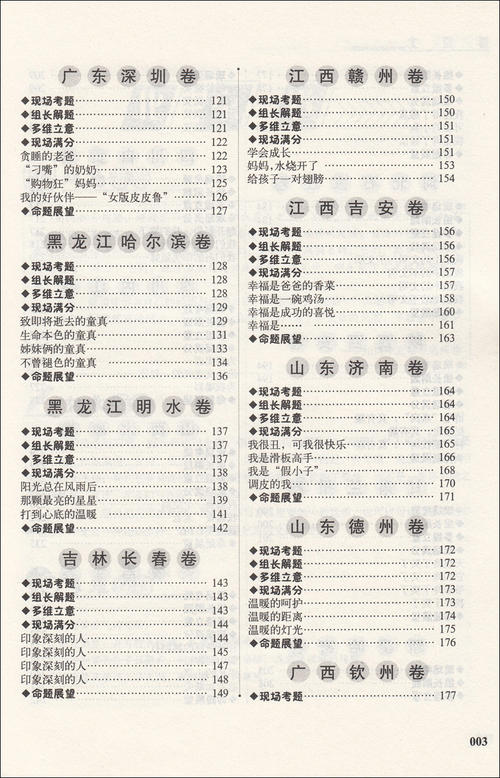 广东深圳卷
◆现场考题 121
◆组长解题 121
◆多维立意 121
◆现场满分 122
贪睡的老爸 122
“刁嘴”的奶奶 123
“购物狂”妈妈 125
我的好伙伴——“女版皮皮鲁” 126
◆命题展望 127
黑龙江哈尔滨卷
◆现场考题 128
◆组长解题 128
◆多维立意 128
◆现场满分 129
致即将逝去的童真 129
生命本色的童真 131
姊妹俩的童真 133
不曾褪色的童真 134
◆命题展望 136
黑龙江明水卷
◆现场考题 137
◆组长解题 137
◆多维立意 137
◆现场满分 138
阳光总在风雨后 138
那颗最亮的星星 139
打到心底的温暖 141
◆命题展望 142
吉林长春卷
◆现场考题 143
◆组长解题 143
◆多维立意 143
◆现场满分 144
印象深刻的人 144
印象深刻的人 145
印象深刻的人 147
印象深刻的人 148
◆命题展望 149
江西赣州卷
◆现场考题 150
◆组长解题 150
◆多维立意 151
◆现场满分 151
学会成长 151
妈妈,水烧开了 153
给孩子一对翅膀 154
江西吉安卷
◆现场考题 156
◆组长解题 156
◆多维立意 156
◆现场满分 157
幸福是爸爸的香菜 157
幸福是一碗鸡汤 158
幸福是成功的喜悦 160
幸福是…… 161
◆命题展望 163
山东济南卷
◆现场考题 164
◆组长解题 164
◆多维立意 164
◆现场满分 165
我很丑，可我很快乐 165
我是滑板高手 166
我是“假小子” 168
调皮的我 170
◆命题展望 171
山东德州卷
◆现场考题 172
◆组长解题 172
◆多维立意 172
◆现场满分 173
温暖的呵护 173
温暖的距离 174
温暖的灯光 175
◆命题展望 176
广西钦州卷
◆现场考题 177
003